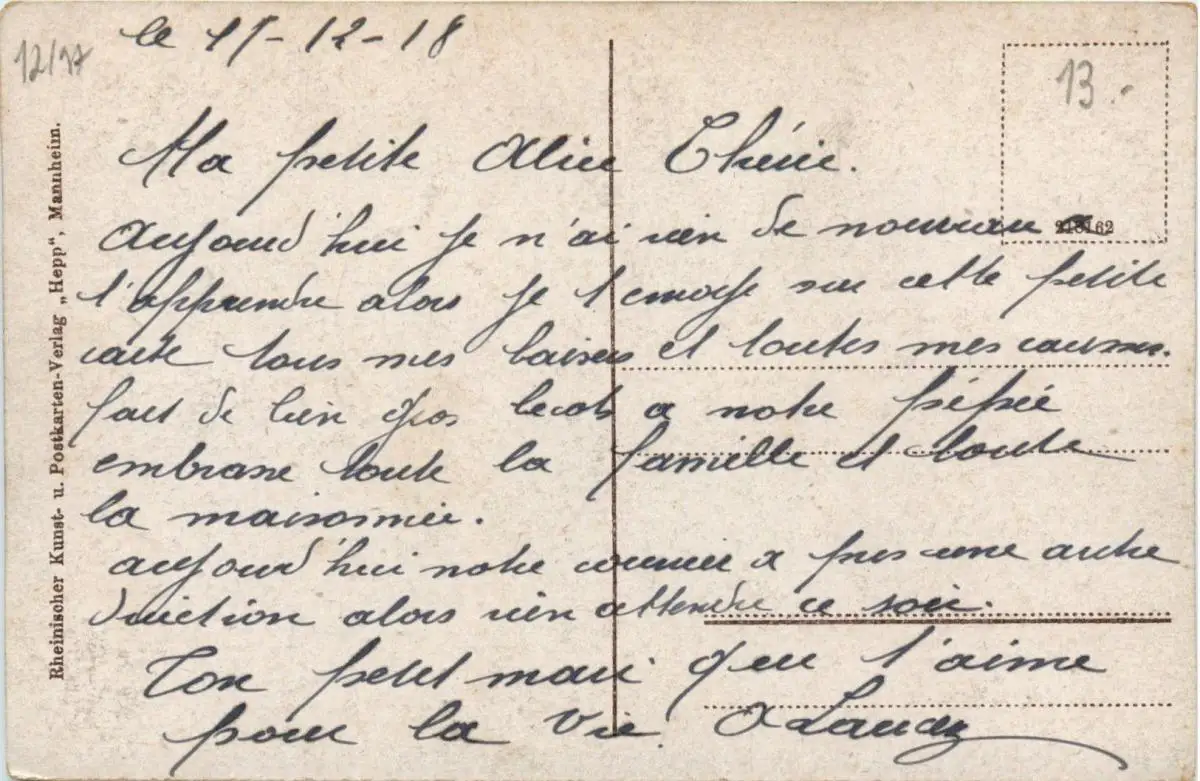 le 15-12-18
12/97
13.-
Ma petite Alice Chérie.
aujourd'hui je n'ai rien de nouveau a
t'apprendre alors je t'envoye sur cette petite
carte tous mes baisers et toutes mes caresses.
fait de bien gros becots a notre pépée
embrasse toute la famille et toute
la maisonnée.
aujourd'hui notre courrier a pris une autre
direction alors rien attendre ce soir.
Ton petit mari qui t'aime
pour la vie.
Rheinischer Kunst- u. Postkarten-Verlag „Hepp“, Mannheim.